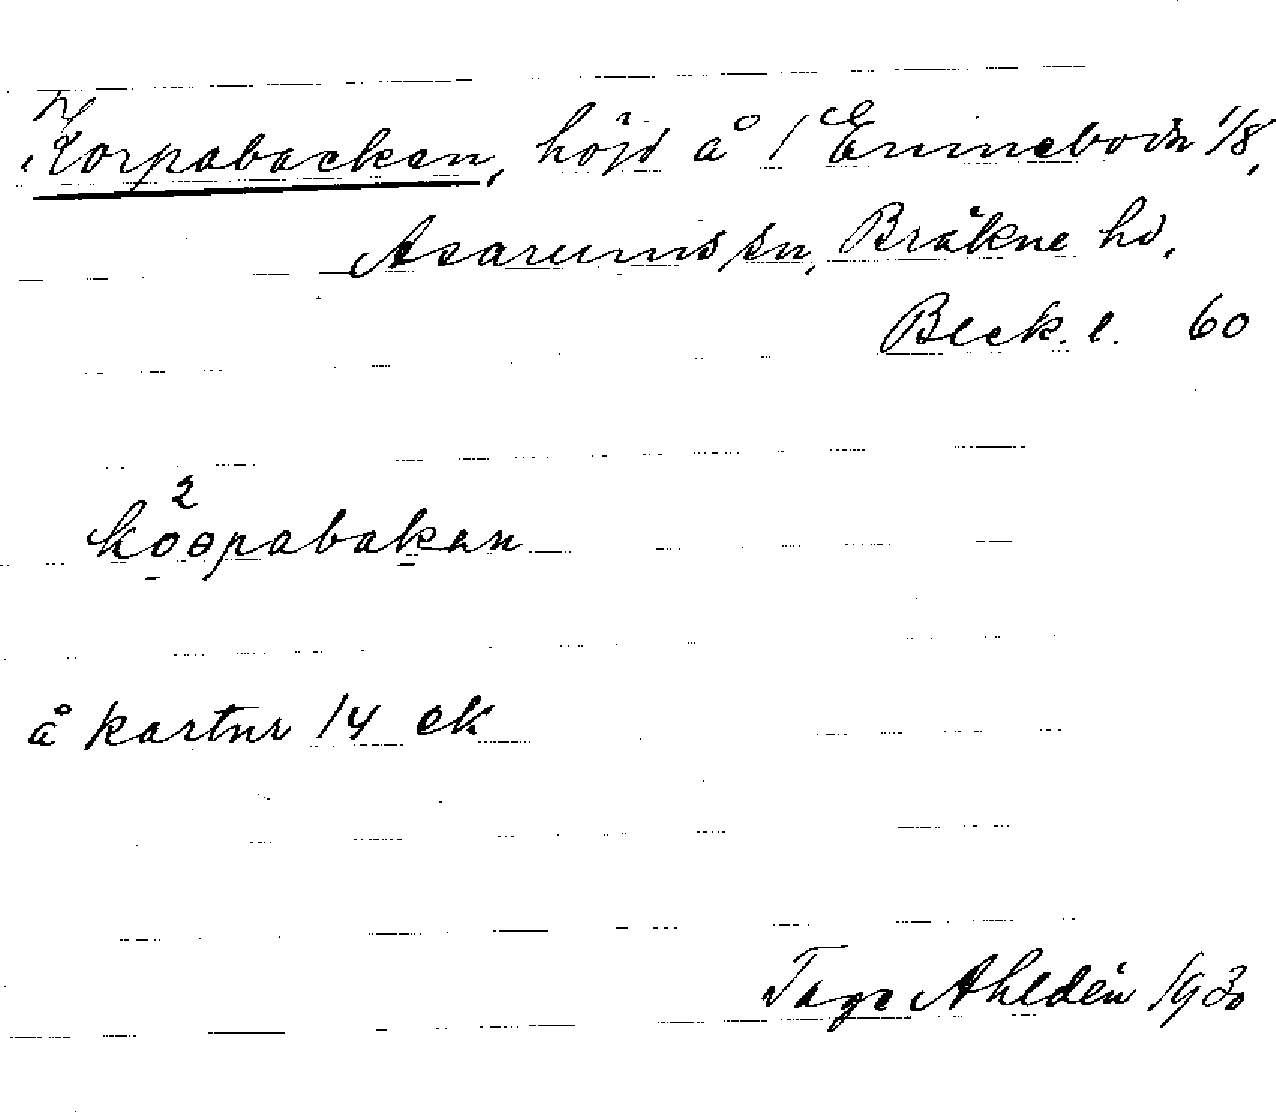 Korpabacken, höjd å 1 Ennebodn 1/8,
Asarums sn, Bräkne hd,
Bleck. l. 60
2
koopabakan
å kartnr 14 ek
Tage Ahldén 1930